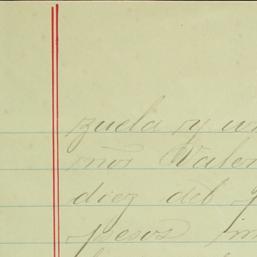 zuela y un
mor Valen
diez del
pesos im